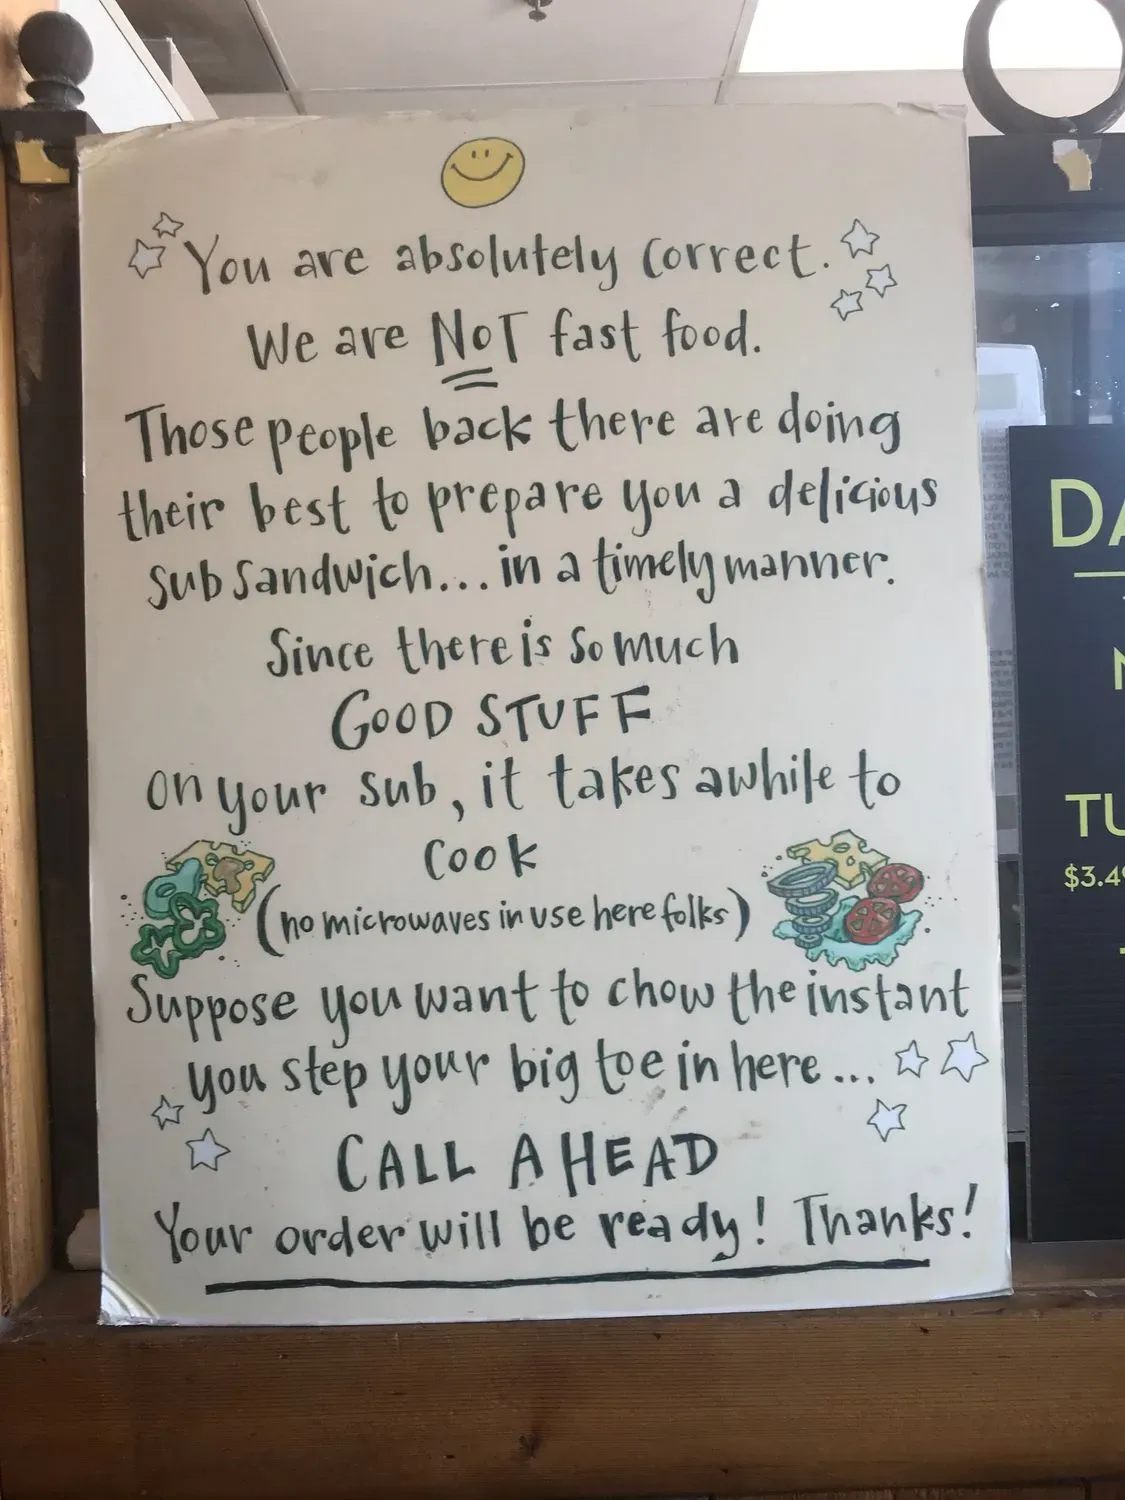 You are absolutely correct.
We are NOT fast food.
Those people back there are doing
their best to prepare you a delicious
sub sandwich... in a timely manner.
Since there is so much
GOOD STUFF
on your sub, it takes awhile to
cook
(no microwaves in use here folks)
Suppose you want to chow the instant
you step your big toe in here...
CALL AHEAD
Your order will be ready! Thanks!
DA
TU
$3.49